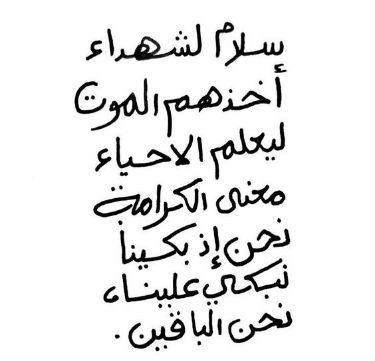 سلام لشهداء
أخذهم الموت
ليعلم الاحياء
معنى الكرامة
نحن إذ بكينا
نبكي علينا،
نحن الباقين.